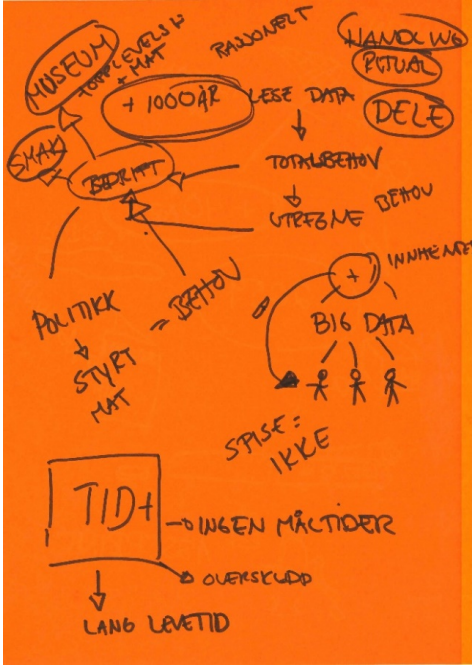 MUSEUM
OPPLEVELSE
+ MAT
RASJONELT
HANDLING
RITUAL
DELE
+ 1000 ÅR
LESE DATA
SMAK
BEDRIFT
TOTALBEHOV
UTREGNE BEHOV
INNHENTE
+
BIG DATA
POLITIKK
= BEHOV
STYRT
MAT
SPISE =
IKKE
TID+
INGEN MÅLTIDER
OVERSKUDD
LANG LEVETID